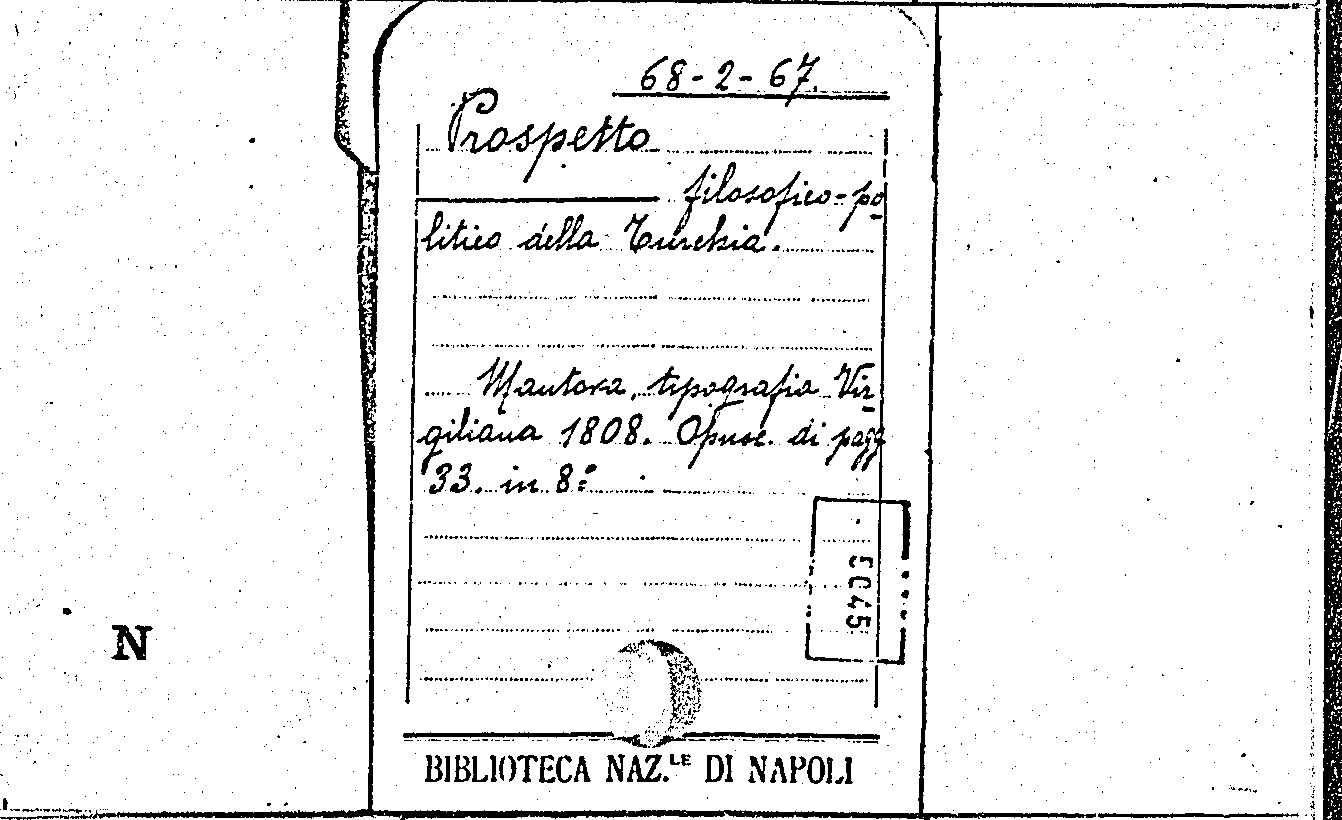 68-2-67.
Prospetto
filosofico-po
litico della Turchia.
Mantova, tipografia Vir
giliana 1808. Opusc. di pagg
33. in 8º
5045
N
BIBLIOTECA NAZ.LE DI NAPOLI